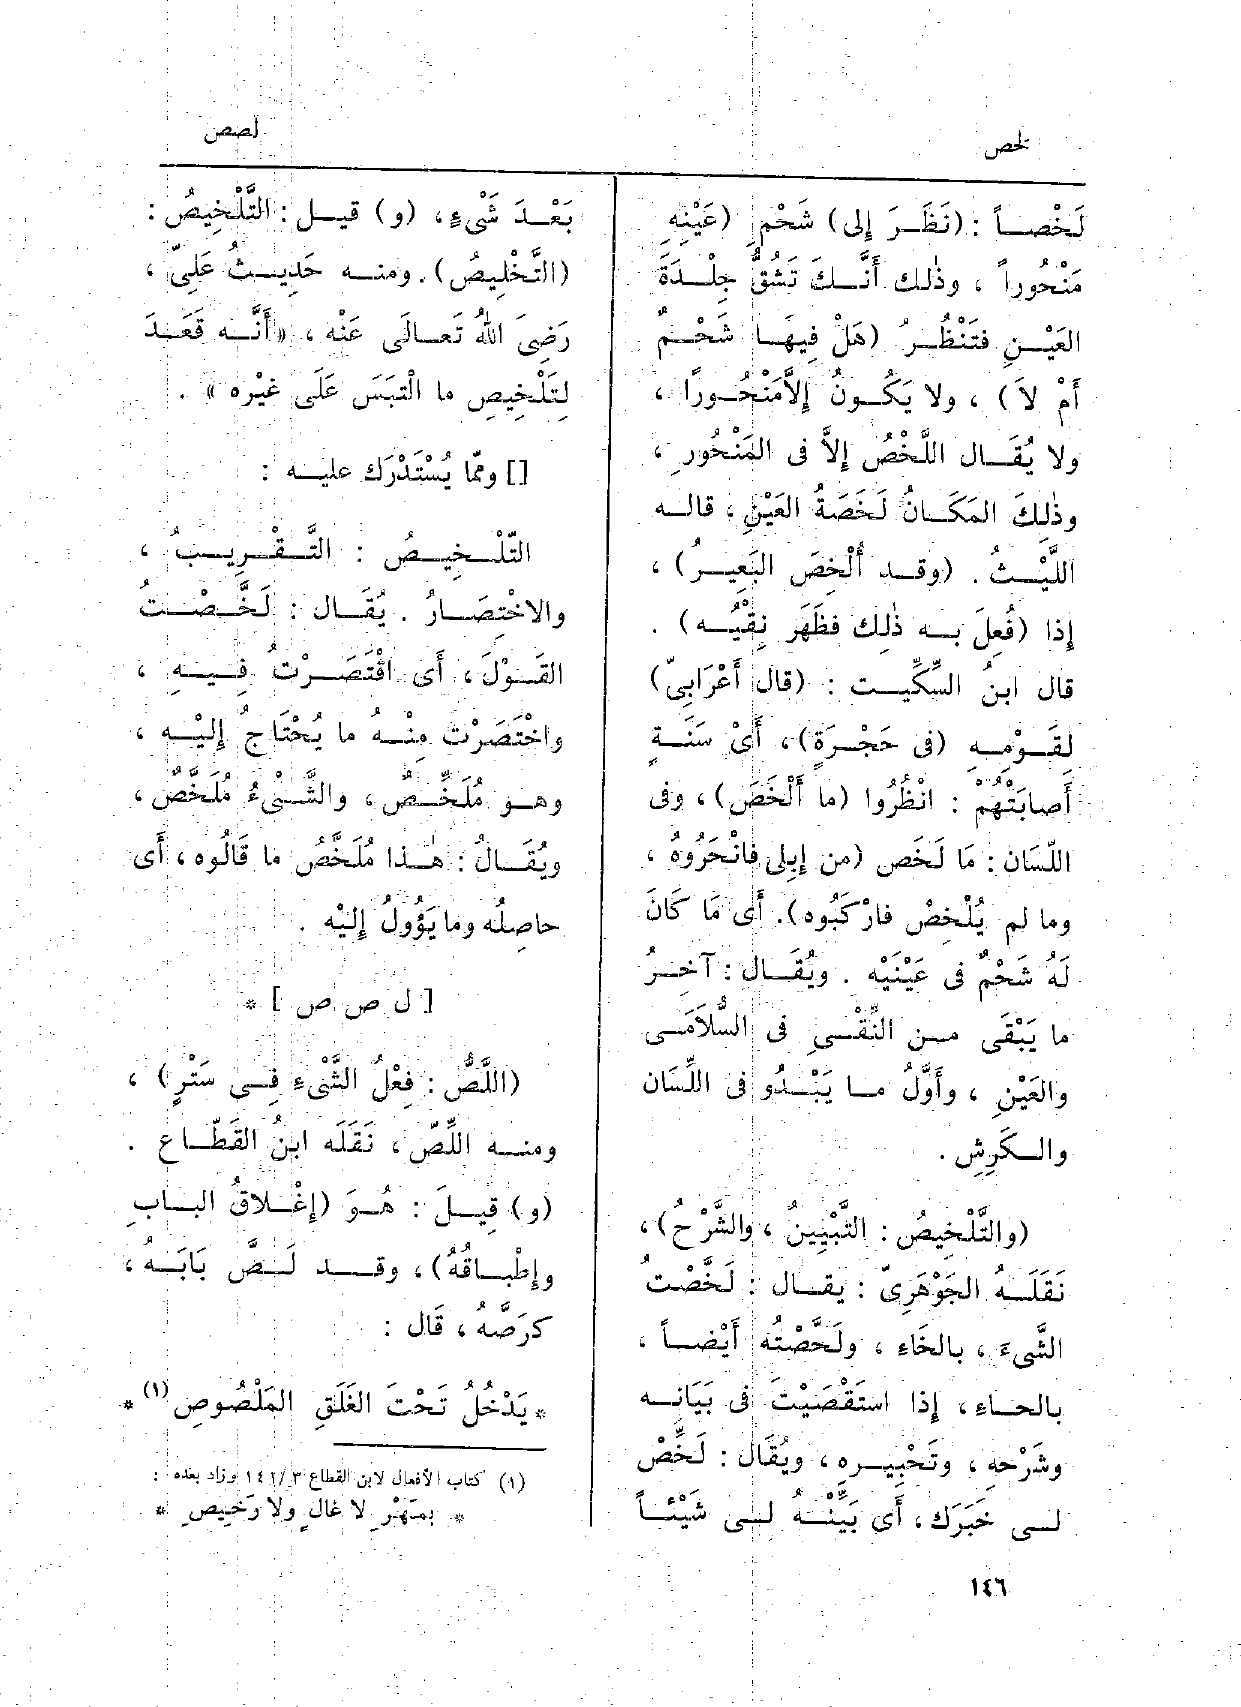 لخص
لصص
لَخْصـاً : (نَظَرَ إلى) شَحْمِ (عَيْنِهِ
مَنْحُوراً ، وذٰلك أَنَّـكَ تَشقُّ جِلْـدَةَ
العَيْـنِ فتَنْظُـرُ (هَلْ فِيهَـا شَحْـمٌ
أَمْ لاَ) ، ولا يَكُـونُ إلاَّ مَنْحُـورًا ،
ولا يُقَـال اللَّخْصُ إلاَّ فى المَنْحُورِ ،
وذٰلِكَ المَكَـانُ لَخَصَةُ العَيْنِ ، قالـه
اللَّيْـثُ . (وقـد أُلْخِصَ البَعِيـرُ) ،
إذا (فُعِلَ بـه ذٰلِك فظَهَر نِقْيُـه) .
قال ابنُ السِّكِّيـت : (قال أَعْرَابِىّ)
لقَـوْمِـهِ (فى حَجْـرَةٍ) ، أَىْ سَنَـةٍ
أَصابَتْهُمْ : انْظُرُوا (ما أَلْخَصَ) ، وفى
اللّسَان : مَا لَخَص (من إبِلِى فانْحَرُوهُ ،
وما لم يُلْخِصْ فارْكَبُوه) . أَى مَا كَانَ
لَهُ شَحْمٌ فى عَيْنَيْه . ويُقَـال : آخِـرُ
ما يَبْقَى مـن النِّقْـىِ فى السُّلاَمَـى
والعَيْنِ ، وأَوَّلُ مـا يَبْـدُو فى اللِّسَان
والـكَرِشِ .
(والتَّلْخِيصُ : التَّبْيِينُ ، والشَّرْحُ) ،
نَقَلَـهُ الجَوْهَرِىّ : يقـال : لَخَّصْتُ
الشَّىءَ ، بالخَاءِ ، ولَحَّصْتُه أَيْضـاً ،
بالحـاءِ ، إذا استَقْصَيْتَ فى بَيَانِـه
وشَرْحِهِ ، وتَحْبِيـرِه ، ويُقَال : لَخِّصْ
لـى خَبَرَك ، أَى بَيِّنْـهُ لـى شَيْئـاً
بَعْـدَ شَىْءٍ ، (و) قيـل : التَّلْخِيصُ :
(التَّخْلِيصُ) . ومنـه حَدِيـثُ عَلِىّ ،
رَضِىَ اللهُ تَعـالَى عَنْه ، «أَنَّـه قَعَـدَ
لِتَلْخِيصِ ما الْتبَسَ عَلَى غَيْرِه » .
[] وممّا يُسْتَدْرَك عليـه :
التّلْـخِيـصُ : التَّـقْـرِيـبُ ،
والاخْتِصَـارُ . يُقَـال : لَخَّـصْـتُ
القَـوْلَ ، أَى اقْتَصَـرْتُ فِـيـهِ ،
واخْتَصَرْت مِنْـهُ ما يُحْتَاجُ إلَيْـه ،
وهـو مُلَخِّـصٌ ، والشَّـىْءُ مُلَخَّصٌ ،
ويُقَـالُ : هٰـذا مُلَخَّصُ ما قَالُوه ، أَى
حاصِلُه وما يَؤُولُ إلَيْه .
[ ل ص ص ] *
(اللَّصُّ : فِعْلُ الشَّىْءِ فِـى سَتْرٍ) ،
ومنـه اللِّصّ ، نَقَلَه ابنُ القَطّـاع .
(و) قِيـلَ : هُـوَ (إغْـلاقُ البـابِ
وإطْبـاقُهُ) ، وقـد لَـصَّ بَابَـهُ ،
كرَصَّهُ ، قَال :
* يَدْخُلُ تَحْتَ الغَلَقِ المَلْصُوصِ (١) *
(١) كتاب الأفعال لابن القطاع ٣/١٤٢ وزاد بعده :
* بمَهْرِ لا غالٍ ولا رَخِيصِ *
١٤٦